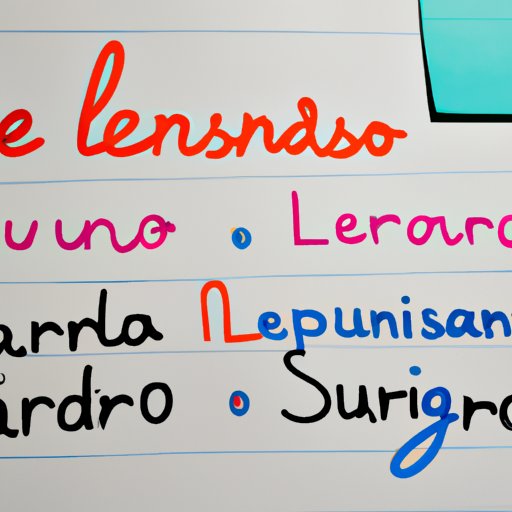 e lensndso
uuno • Leraro
arrla Lepunisan
árdro • Surigro